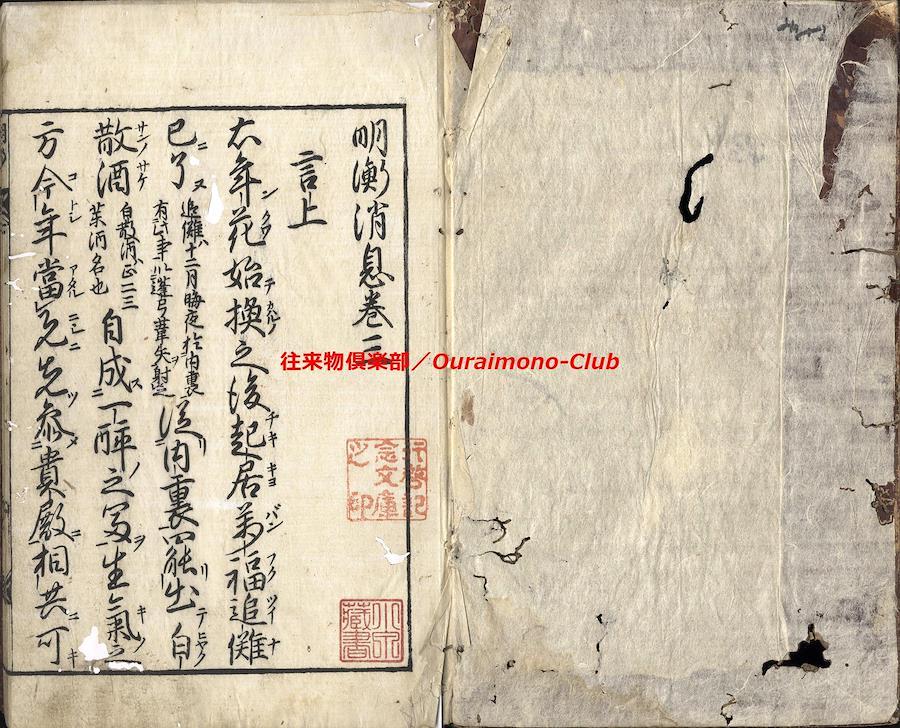 明衡消息巻三
言上
右年花始換之後起居萬福追儺
已了追儺十二月晦夜於内裏
有此事以蓬弓葦矢射之從内裏罷出白
散酒白散酒正二三
某酒名也自成一酔之處生氣之
方今年當兄先參貴殿相共可
往来物倶楽部／Ouraimono-Club
行啓記
念文庫
之印
藏書